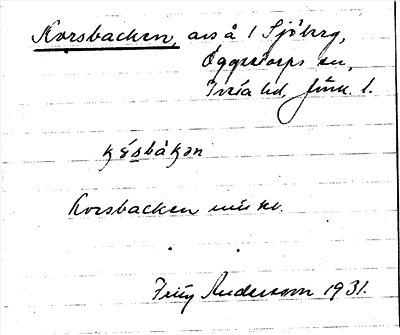 Korsbacken, avs å 1 Sjöberg,
Öggestorps sn,
Tveta hd, Jönk. l.
kɷ́sbàkən
Korsbacken
Fritz Andersson 1931.